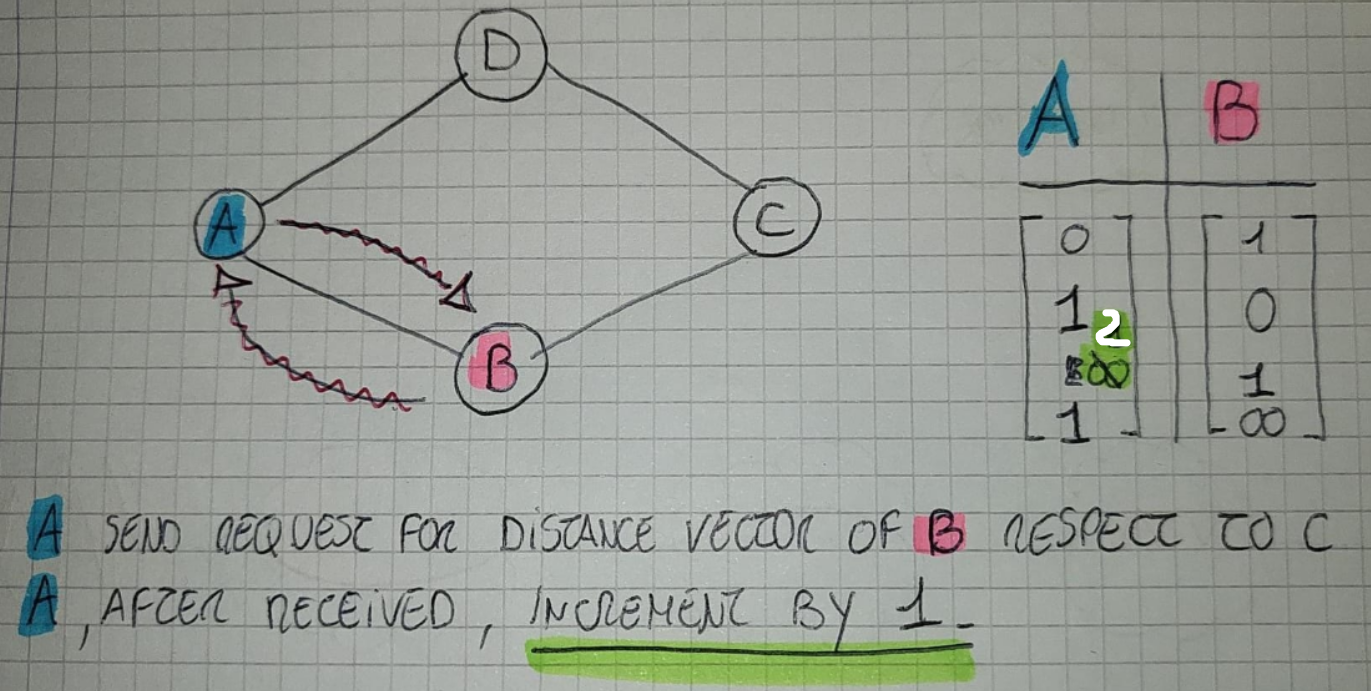 D
A B
A C
0 1
1 2 0
∞ 1
1 ∞
B
A SEND REQUEST FOR DISTANCE VECTOR OF B RESPECT TO C
A, AFTER RECEIVED, INCREMENT BY 1-